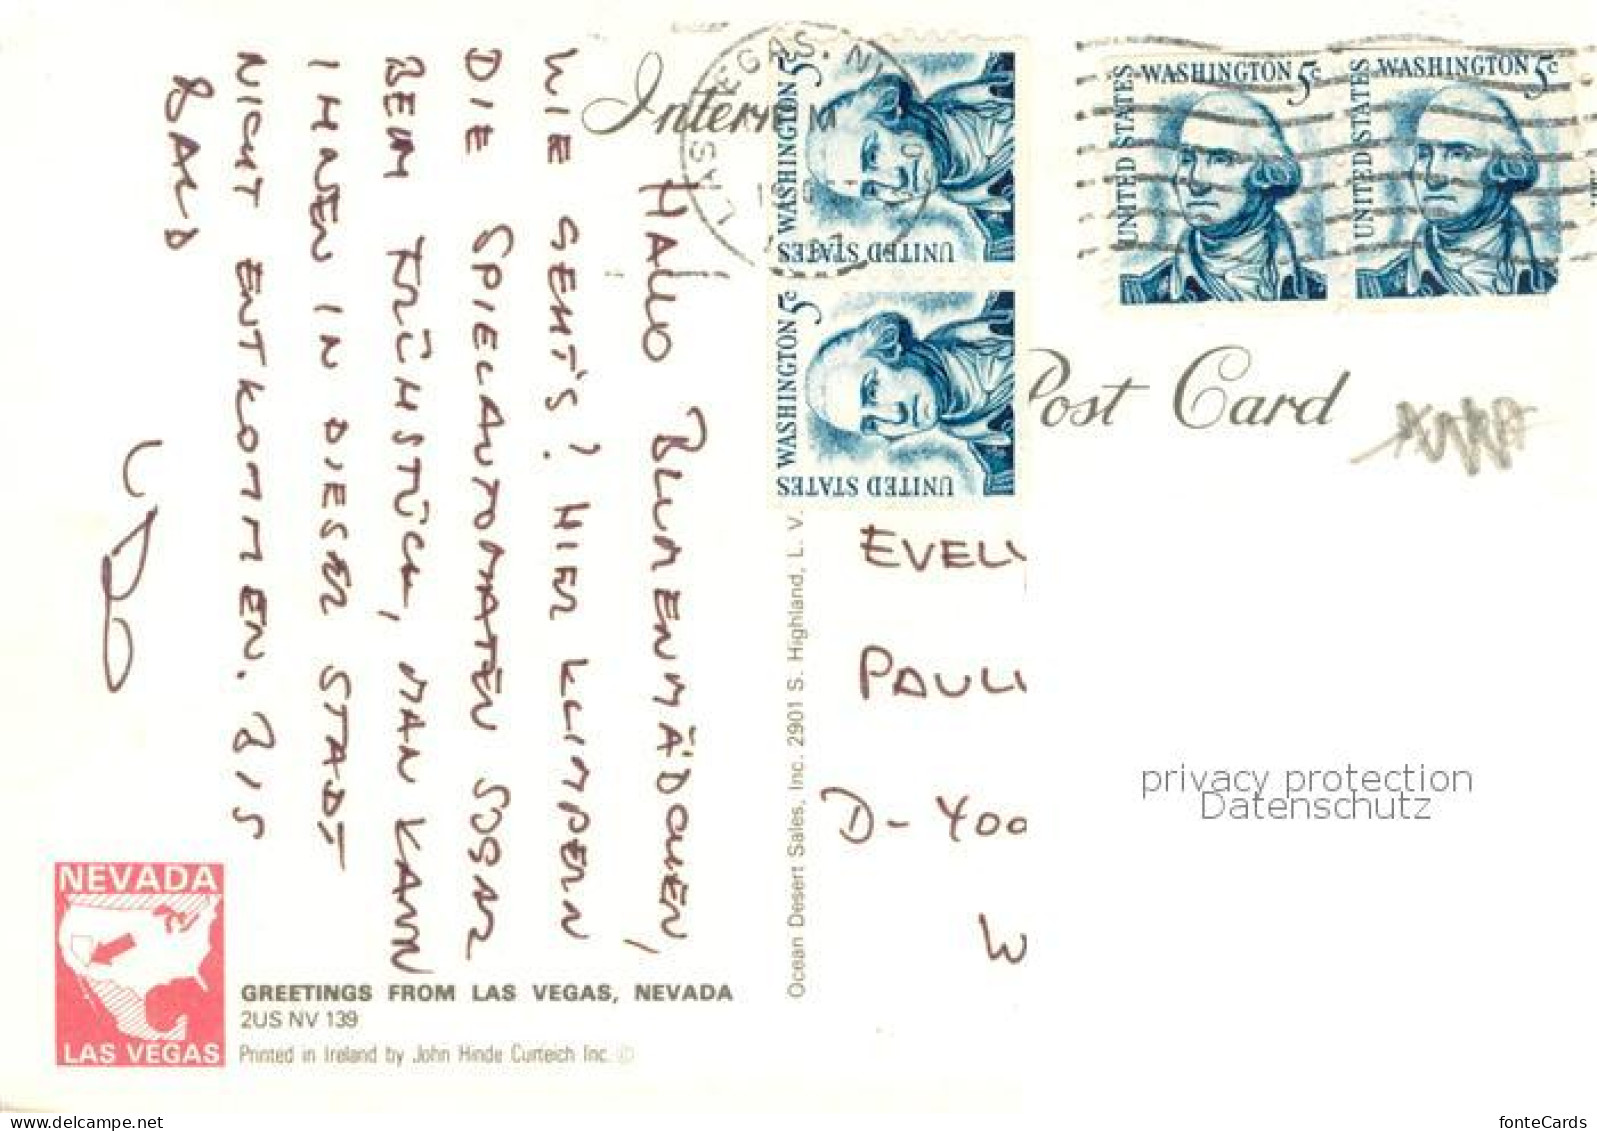 HALLO BLUMENMÄDCHEN,
WIE GEHT'S? HIER KLIMPERN
DIE SPIELAUTOMATEN SOGAR
BEIM FRÜHSTÜCK, MAN KANN
IHNEN IN DIESER STADT
NICHT ENTKOMMEN. BIS
BALD
International
Post Card
LAS VEGAS, NV
WASHINGTON 5c
UNITED STATES
WASHINGTON 5c
UNITED STATES
WASHINGTON 5c
UNITED STATES
WASHINGTON 5c
UNITED STATES
EVEL
PAUL
D-400
W
privacy protection
Datenschutz
Ocean Desert Sales, Inc. 2901 S. Highland, L. V.
NEVADA
LAS VEGAS
GREETINGS FROM LAS VEGAS, NEVADA
2US NV 139
Printed in Ireland by John Hinde Curteich Inc. ©
www.delcampe.net
fonteCards